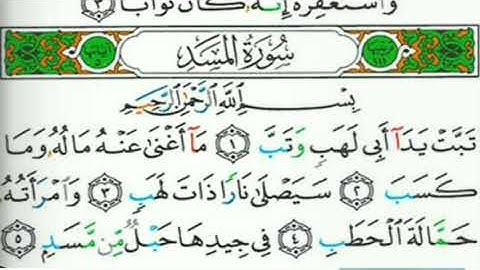 وَاسْتَغْفِرْهُ إِنَّهُ كَانَ تَوَّابًا ٣
سُورَةُ المَسَدِ
بِسْمِ اللَّهِ الرَّحْمَٰنِ الرَّحِيمِ
تَبَّتْ يَدَآ أَبِى لَهَبٍ وَتَبَّ ١ مَآ أَغْنَىٰ عَنْهُ مَالُهُۥ وَمَا
كَسَبَ ٢ سَيَصْلَىٰ نَارًا ذَاتَ لَهَبٍ ٣ وَامْرَأَتُهُۥ
حَمَّالَةَ الْحَطَبِ ٤ فِى جِيدِهَا حَبْلٌ مِّن مَّسَدٍ ٥